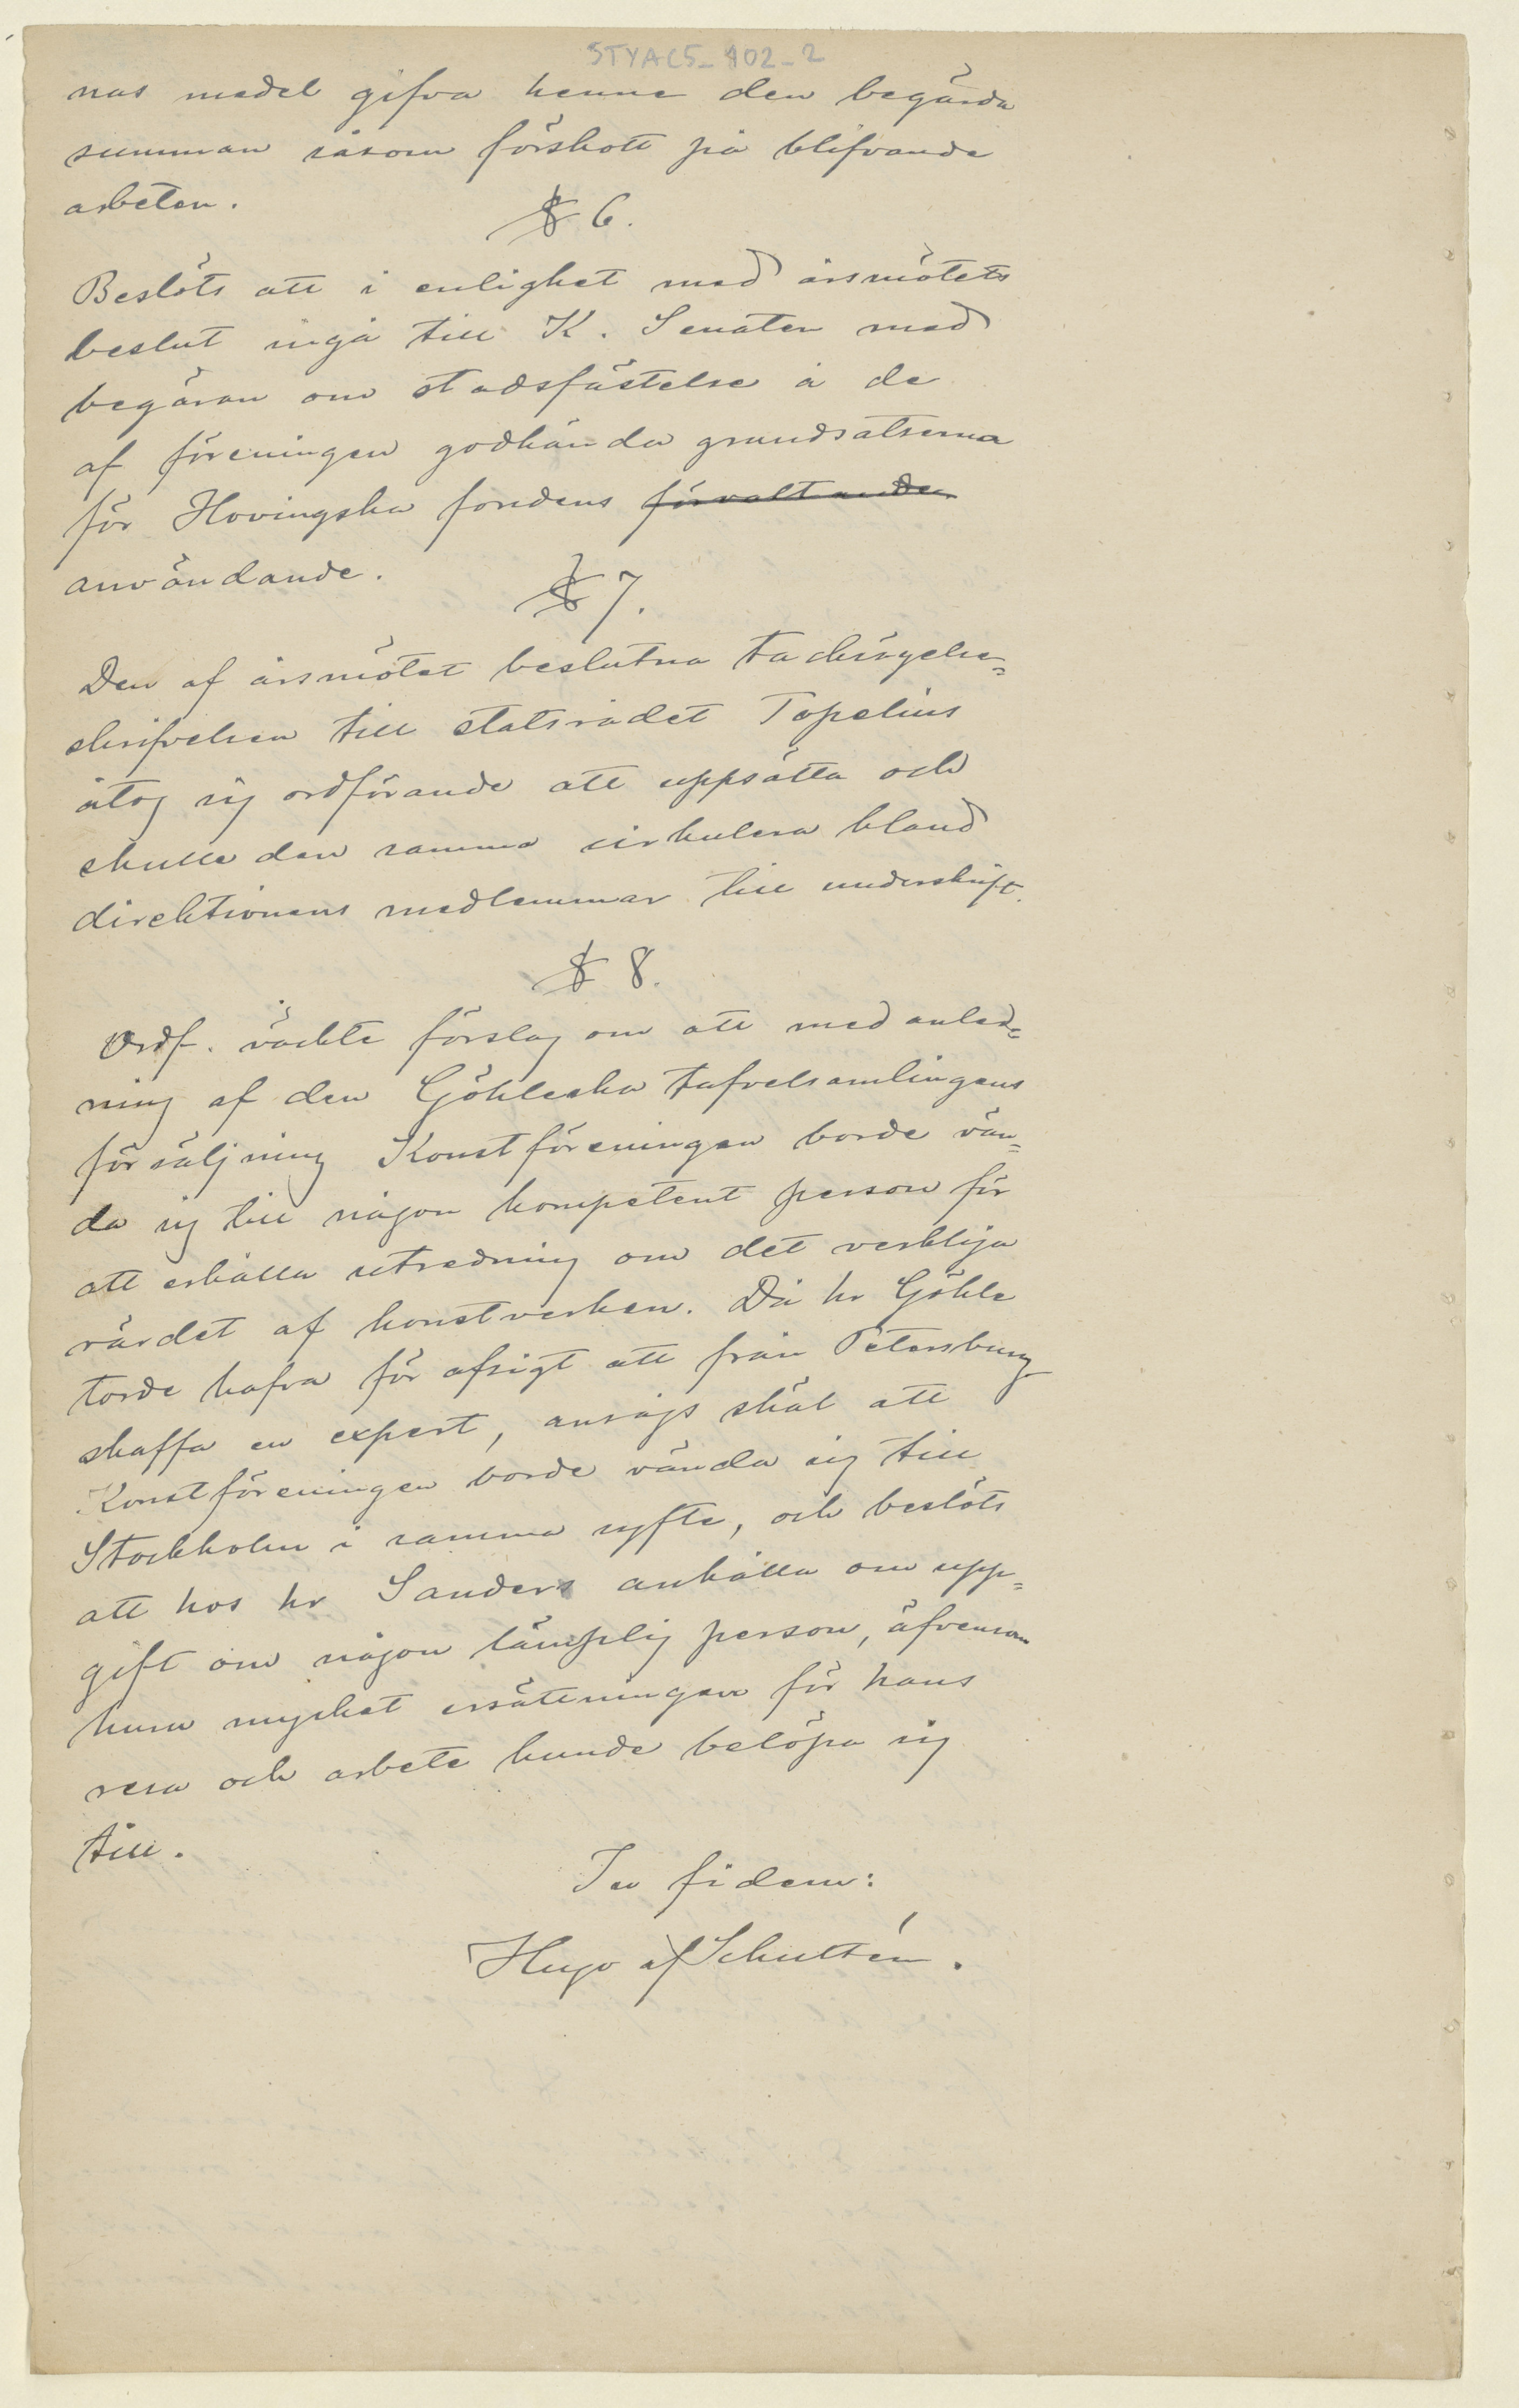 STYAC5_102_2
nas medel gifva henne den begärda
summan såsom förskott på blifvande
arbeten.
§ 6.
Beslöts att i enlighet med årsmötets
beslut ingå till K. Senaten med
begäran om stadsfästelse å de
af föreningen godkända grundsatserna
för Hovingska fondens förvaltande
användande.
§ 7.
Den af årsmötet beslutna tacksägelse=
skrifvelsen till statsrådet Topelius
åtog sig ordförande att uppsätta och
skulle den samma cirkulera bland
direktionens medlemmar till underskrift.
§ 8.
Ordf. väckte förslag om att med anled=
ning af den Göhleska tafvelsamlingens
försäljning Konstföreningen borde vän=
da sig till någon kompetent person för
att erhålla utredning om det verkliga
värdet af konstverken. Då hr Göhle
torde hafva för afsigt att från Petersburg
skaffa en expert, ansågs skäl att
Konstföreningen borde vända sig till
Stockholm i samma syfte, och beslöts
att hos hr Sanders anhålla om upp=
gift om någon lämplig person, äfvensom
huru mycket ersättningen för hans
resa och arbete kunde belöpa sig
till.
In fidem:
Hugo af Schultén.